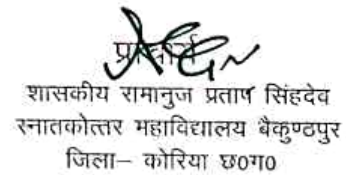 प्राचार्य
शासकीय रामानुज प्रताप सिंहदेव
स्नातकोत्तर महाविद्यालय बैकुण्ठपुर
जिला– कोरिया छ०ग०